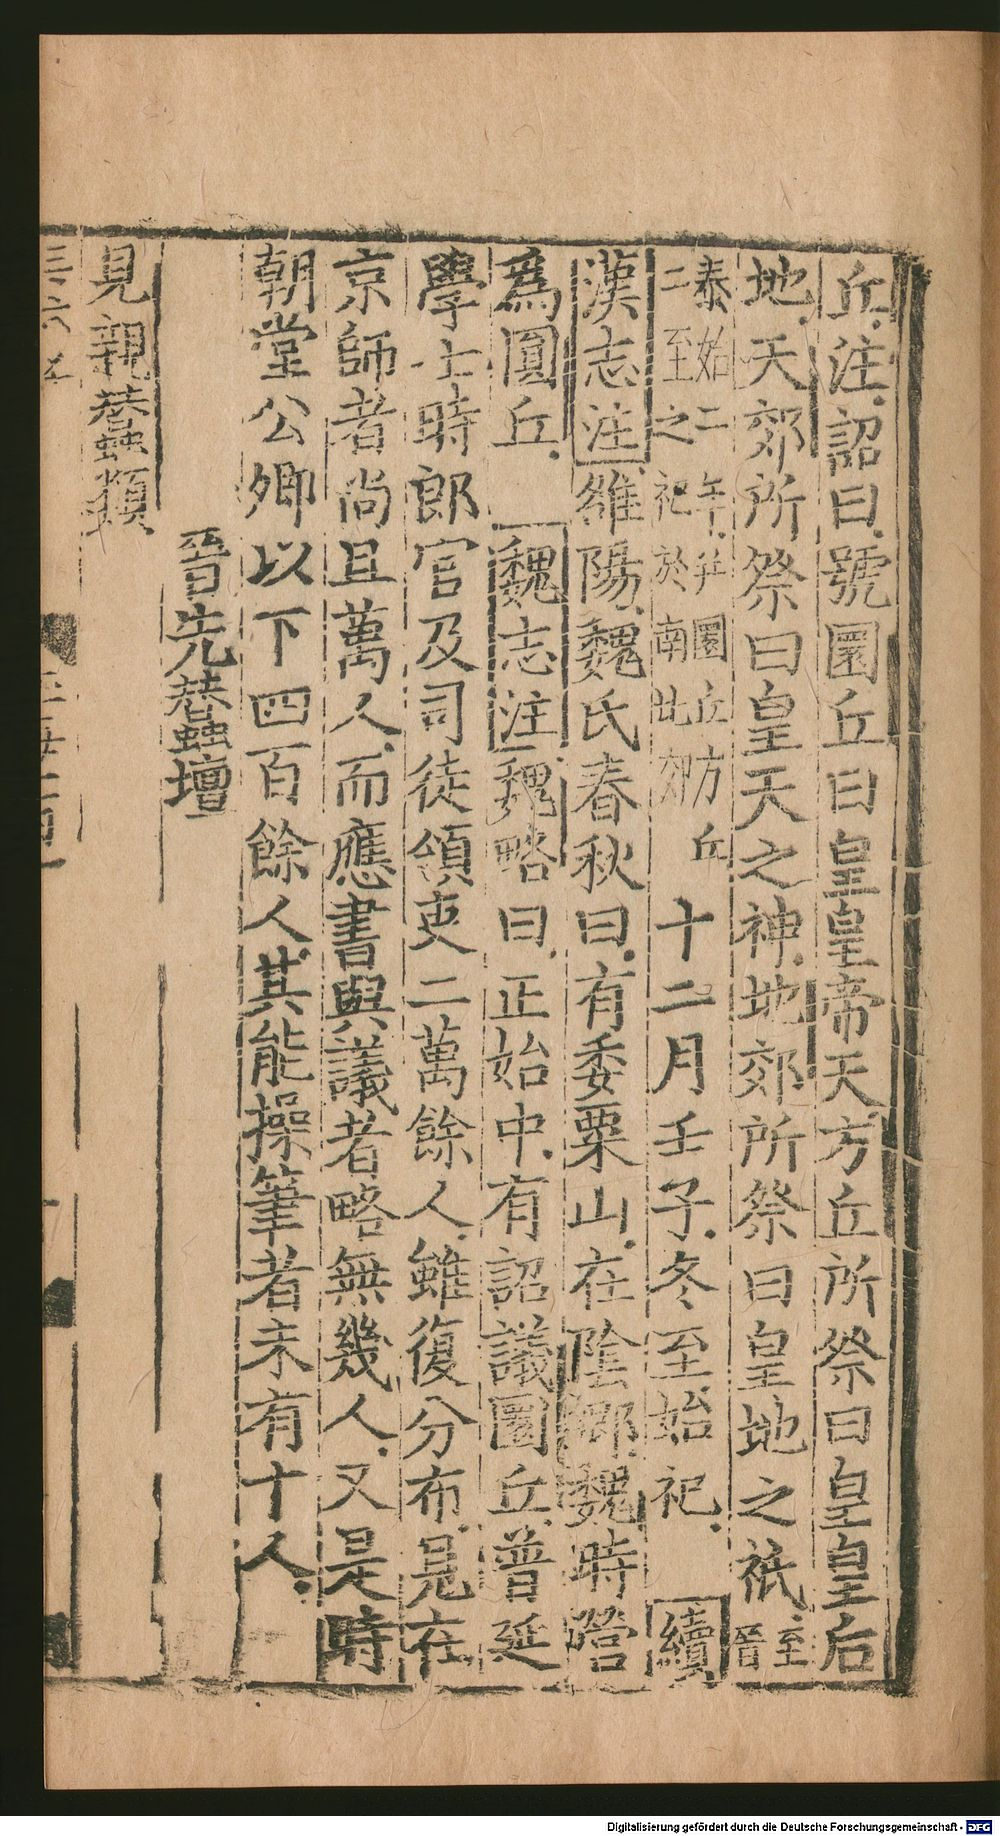 丘注詔曰號圜丘曰皇皇帝天方丘所祭曰皇皇后
地天郊所祭曰皇天之神地郊所祭曰皇地之祇至晉
泰始二年并圜丘方丘
二至之祀於南北郊
十二月壬子冬至始祀 續
漢志注雒陽魏氏春秋曰有委粟山在陰鄉魏時營
為圓丘 魏志注魏略曰正始中有詔議圜丘普延
學士時郎官及司徒領吏二萬餘人雖復分布是在
京師者尚且萬人而應書與議者略無幾人又是時
朝堂公卿以下四百餘人其能操筆者未有十人
晉先蠶壇
見親蠶類
三六五
Digitalisierung gefördert durch die Deutsche Forschungsgemeinschaft - DFG